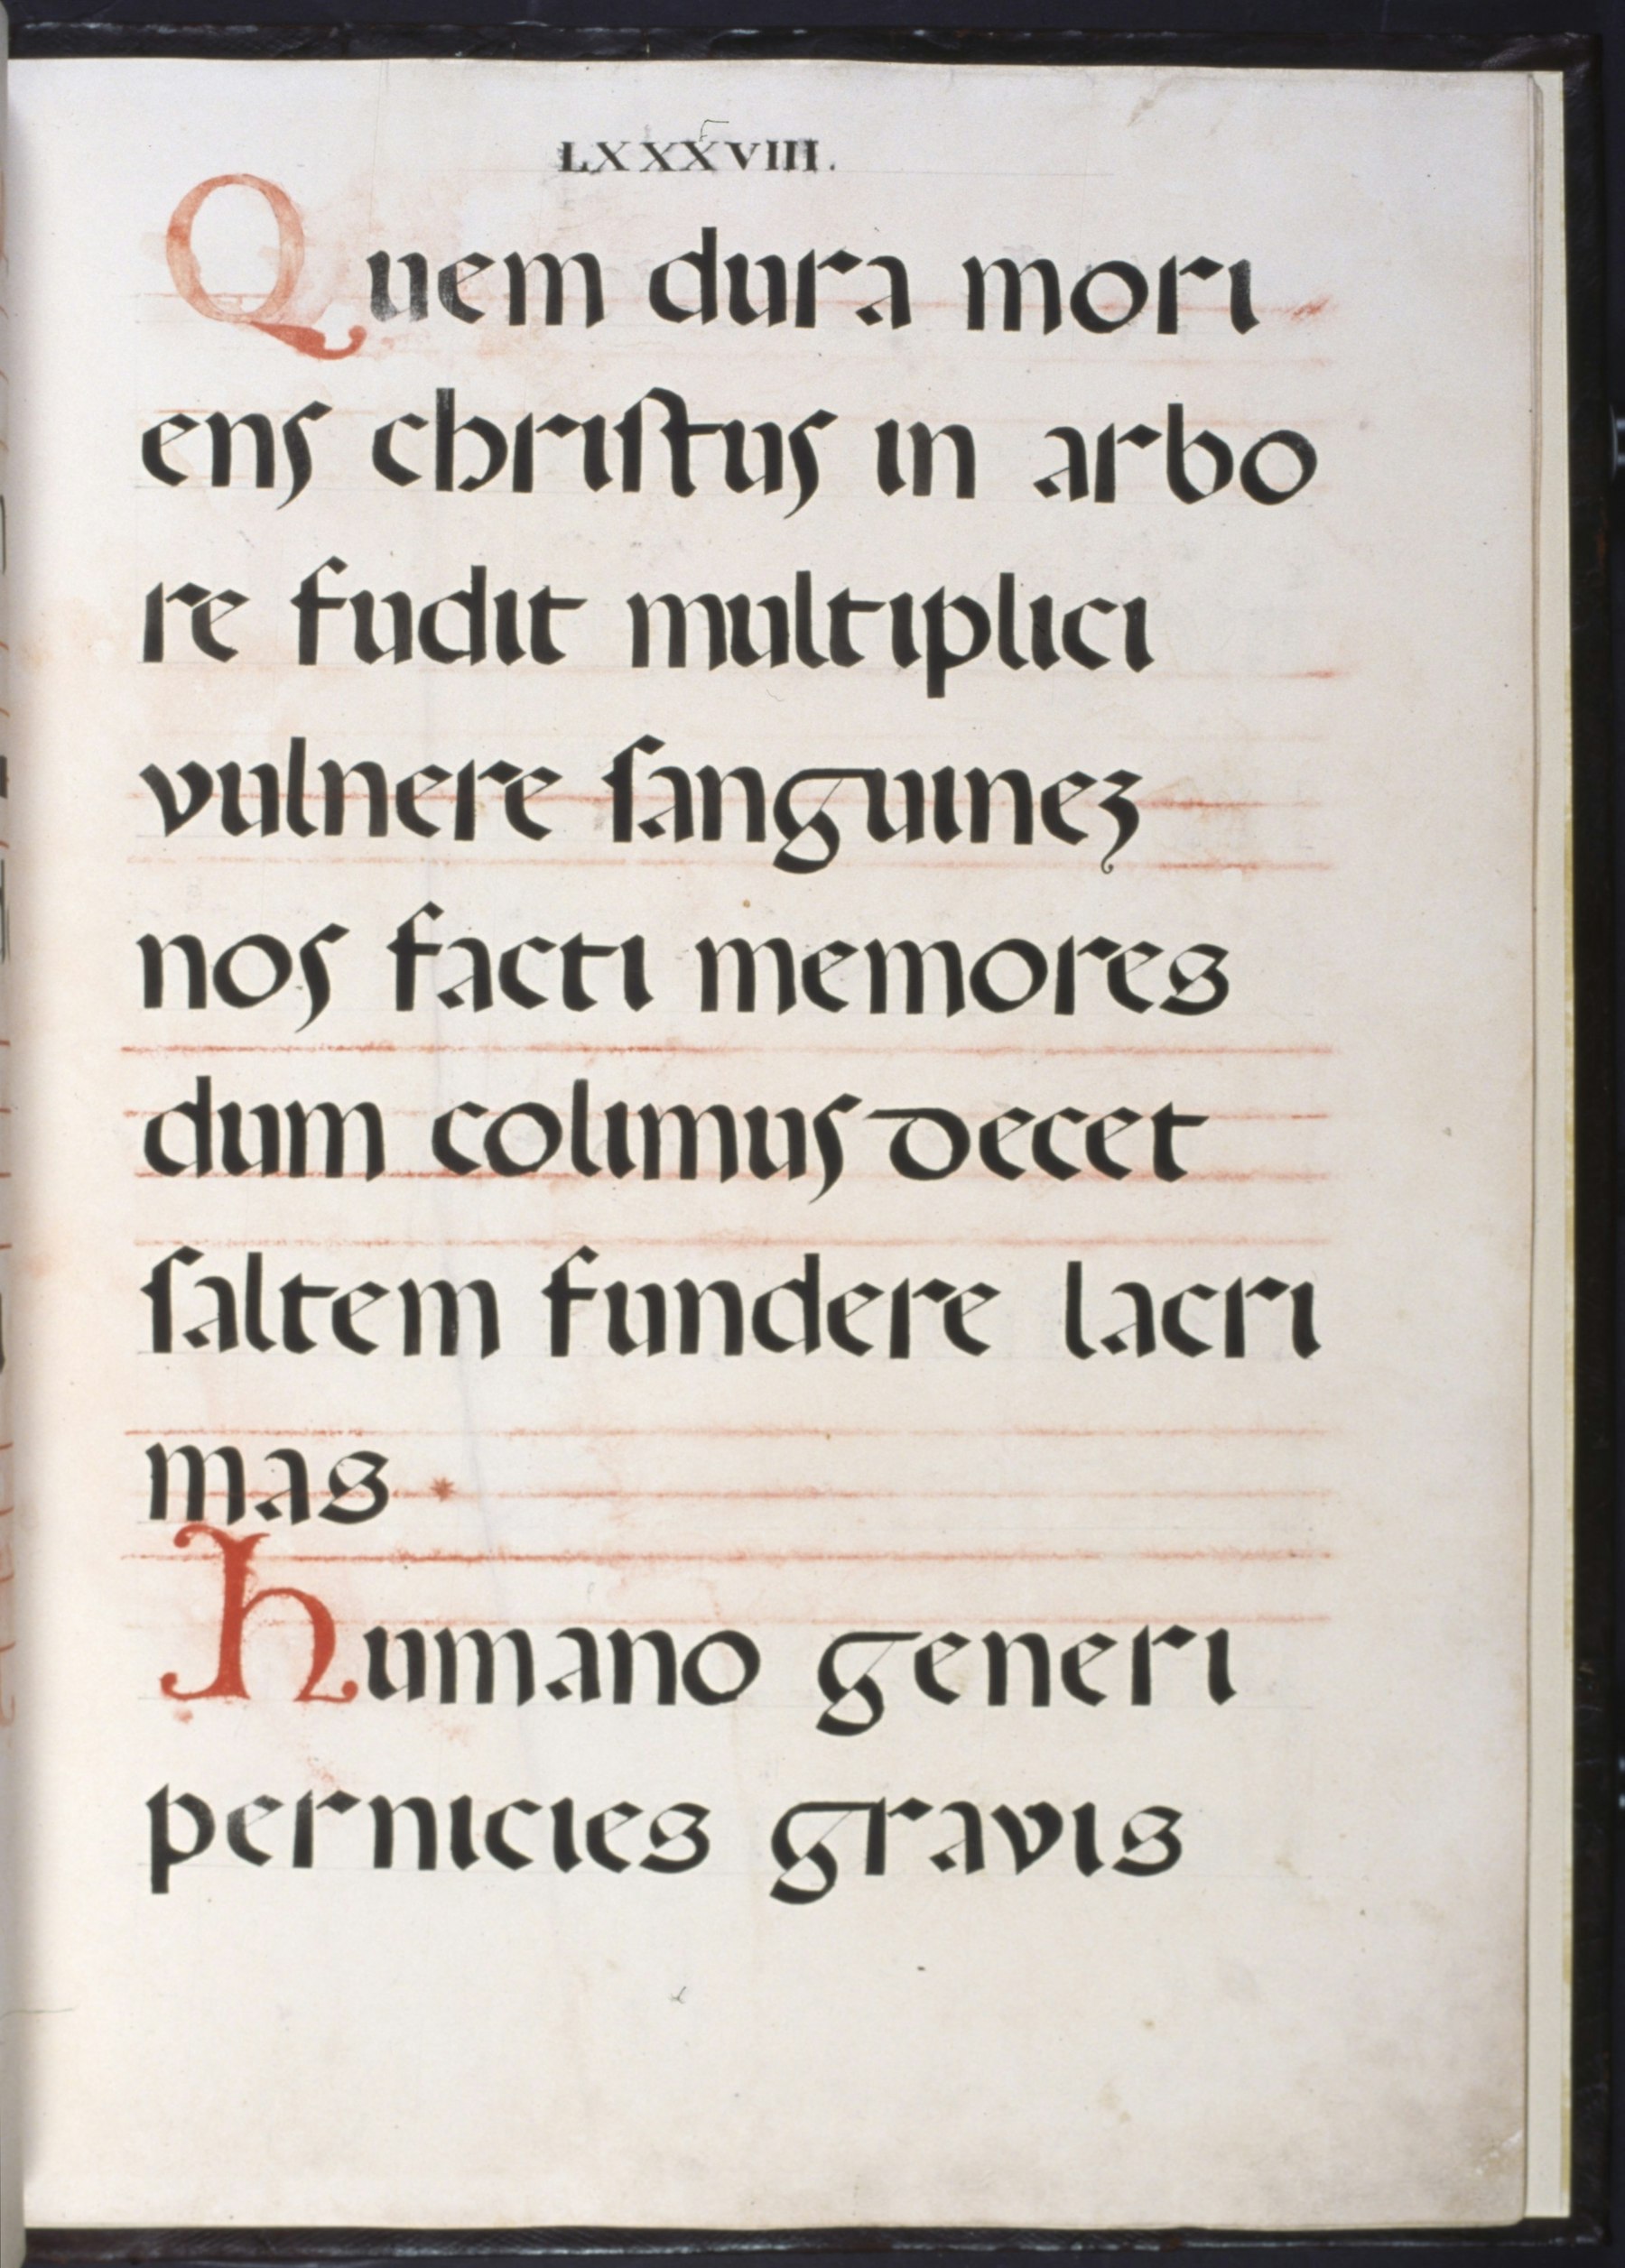 LXXXVIII.
Quem dura mori
ens chriſtus in arbo
re fudit multiplici
vulnere ſanguinez
nos facti memores
dum colimus decet
ſaltem fundere lacri
mas
humano generi
pernicies gravis